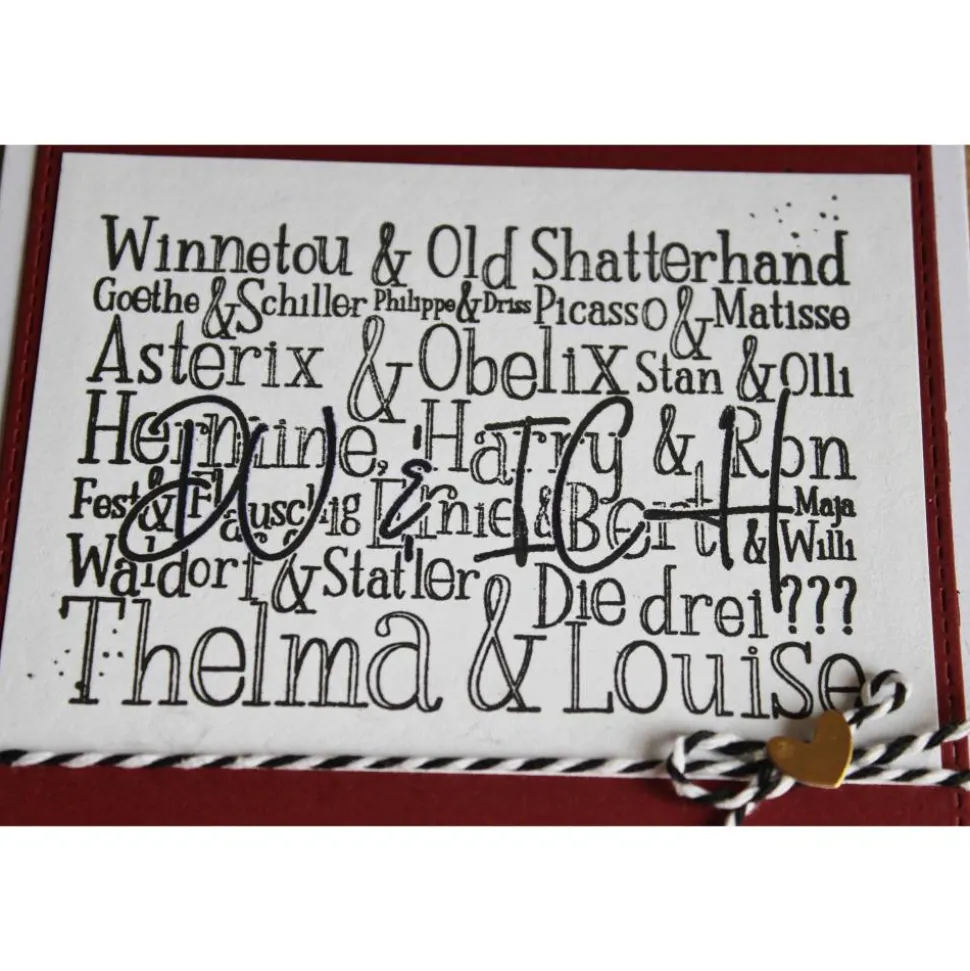 Winnetou & Old Shatterhand
Goethe & Schiller Philippe & Driss Picasso & Matisse
Asterix & Obelix Stan & Olli
Hermine, Harry & Ron
DU & ICH
Fest & Flauschig Ernie & Bert Maja & Willi
Waldorf & Statler Die drei ???
Thelma & Louise